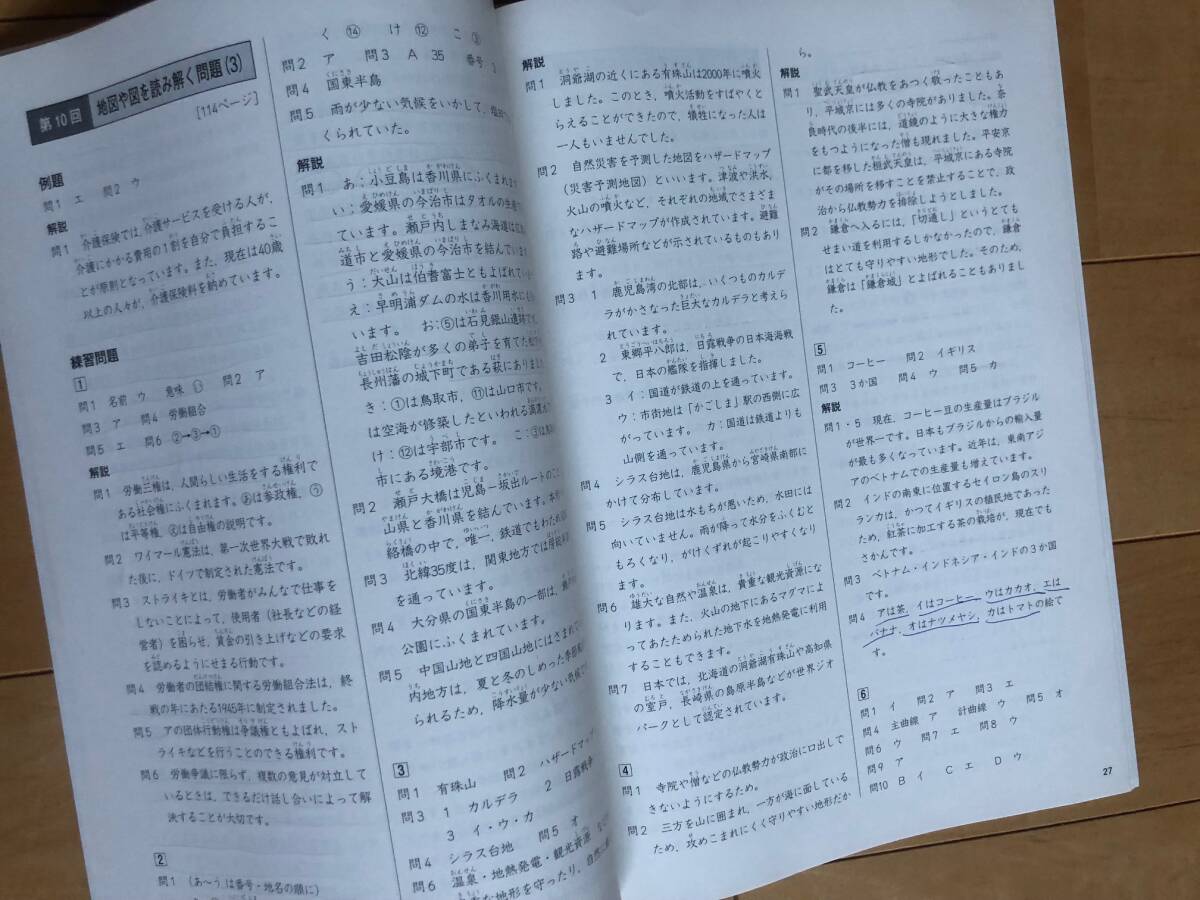 第10回 地図や図を読み解く問題(3)
[114ページ]
例題
問1 エ 問2 ウ
解説
問1 介護保険では,介護サービスを受ける人が,
介護にかかる費用の1割を自分で負担するこ
とが原則となっています。また,現在は40歳
以上の人々が,介護保険料を納めています。
練習問題
1
問1 名前 ウ 意味
問2 ア
問3 ア 問4 労働組合
問5 エ 問6 ②→③→①
解説
問1 労働三権は,人間らしい生活をする権利で
ある社会権にふくまれます。あは参政権,
は平等権,えは自由権の説明です。
問2 ワイマール憲法は,第一次世界大戦で敗れ
た後に,ドイツで制定された憲法です。
問3 ストライキとは,労働者がみんなで仕事を
しないことによって,使用者(社長などの経
営者)を困らせ,賃金の引き上げなどの要求
を認めるようにせまる行動です。
問4 労働者の団結権に関する労働組合法は,終
戦の年にあたる1945年に制定されました。
問5 アの団体行動権は争議権ともよばれ,スト
ライキなどを行うことのできる権利です。
問6 労働争議に限らず,複数の意見が対立して
いるときは,できるだけ話し合いによって解
決することが大切です。
2
問1 (あ〜う は番号・地名の順に)
く ⑭ け ⑫ こ ③
問2 ア 問3 A 35 番号
問4 国東半島
問5 雨が少ない気候をいかして,
くられていた。
解説
問1 あ:小豆島は香川県にふくまれます
い:愛媛県の今治市はタオルの生産で
ています。瀬戸内しまなみ海道は広
道市と愛媛県の今治市を結んでいます
う:大山は伯耆富士ともよばれてい
え:早明浦ダムの水は香川用水に
います。 お:⑤は石見銀山遺跡です
吉田松陰が多くの弟子を育てた
長州藩の城下町である萩にありました
き:①は鳥取市,⑪は山口市です。
は空海が修築したといわれる満濃
け:⑫は宇部市です。 こ:③は
市にある境港です。
問2 瀬戸大橋は児島ー坂出ルートのこと
山県と香川県を結んでいます。本
絡橋の中で,唯一,鉄道でもわた
問3 北緯35度は,関東地方では房総
を通っています。
問4 大分県の国東半島の一部は,
公園にふくまれています。
問5 中国山地と四国山地にはさまれて
内地方は,夏と冬のしめった季節
られるため,降水量が少ない気候
3
問1 有珠山 問2 ハザードマップ
問3 1 カルデラ 2 日露戦争
3 イ・ウ・カ
問4 シラス台地 問5 オ
問6 温泉・地熱発電・観光資源
な地形を守ったり,自然に
解説
問1 洞爺湖の近くにある有珠山は2000年に噴火
しました。このとき,噴火活動をすばやくと
らえることができたので,犠牲になった人は
一人もいませんでした。
問2 自然災害を予測した地図をハザードマップ
(災害予測地図)といいます。津波や洪水,
火山の噴火など,それぞれの地域でさまざま
なハザードマップが作成されています。避難
路や避難場所などが示されているものもあり
ます。
問3 1 鹿児島湾の北部は,いくつものカルデ
ラがかさなった巨大なカルデラと考えら
れています。
2 東郷平八郎は,日露戦争の日本海海戦
で,日本の艦隊を指揮しました。
3 イ:国道が鉄道の上を通っています。
ウ:市街地は「かごしま」駅の西側に広
がっています。 カ:国道は鉄道よりも
山側を通っています。
問4 シラス台地は,鹿児島県から宮崎県南部に
かけて分布しています。
問5 シラス台地は水もちが悪いため,水田には
向いていません。雨が降って水分をふくむと
もろくなり,がけくずれが起こりやすくなり
ます。
問6 雄大な自然や温泉は,貴重な観光資源にな
ります。また,火山の地下にあるマグマによ
ってあたためられた地下水を地熱発電に利用
することもできます。
問7 日本では,北海道の洞爺湖有珠山や高知県
の室戸,長崎県の島原半島などが世界ジオ
パークとして認定されています。
4
問1 寺院や僧などの仏教勢力が政治に口出しで
きないようにするため。
問2 三方を山に囲まれ,一方が海に面している
ため,攻めこまれにくく守りやすい地形だか
ら。
解説
問1 聖武天皇が仏教をあつく敬ったこともあ
り,平城京には多くの寺院がありました。奈
良時代の後半には,道鏡のように大きな権力
をもつようになった僧も現れました。平安京
に都を移した桓武天皇は,平城京にある寺院
がその場所を移すことを禁止することで,政
治から仏教勢力を排除しようとしました。
問2 鎌倉へ入るには,「切通し」というとても
せまい道を利用するしかなかったので,鎌倉
はとても守りやすい地形でした。そのため,
鎌倉は「鎌倉城」とよばれることもありまし
た。
5
問1 コーヒー 問2 イギリス
問3 3か国 問4 ウ 問5 カ
解説
問1・5 現在,コーヒー豆の生産量はブラジル
が世界一です。日本もブラジルからの輸入量
が最も多くなっています。近年は,東南アジ
アのベトナムでの生産量も増えています。
問2 インドの南東に位置するセイロン島のスリ
ランカは,かつてイギリスの植民地であった
ため,紅茶に加工する茶の栽培が,現在でも
さかんです。
問3 ベトナム・インドネシア・インドの3か国
です。
問4 アは茶,イはコーヒー,ウはカカオ,エは
バナナ,オはナツメヤシ,カはトマトの絵で
す。
6
問1 イ 問2 ア 問3 エ
問4 主曲線 ア 計曲線 ウ 問5 オ
問6 ウ 問7 エ 問8 ウ
問9 ア
問10 B イ C エ D ウ
27